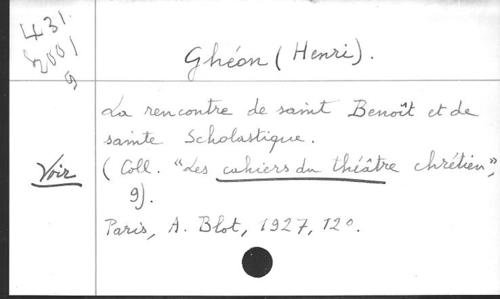 431.
2001
9
Ghéon (Henri).
La rencontre de saint Benoît et de
sainte Scholastique.
Voir
(Coll. "Les cahiers du théâtre chrétien",
9).
Paris, A. Blot, 1927, 12º.